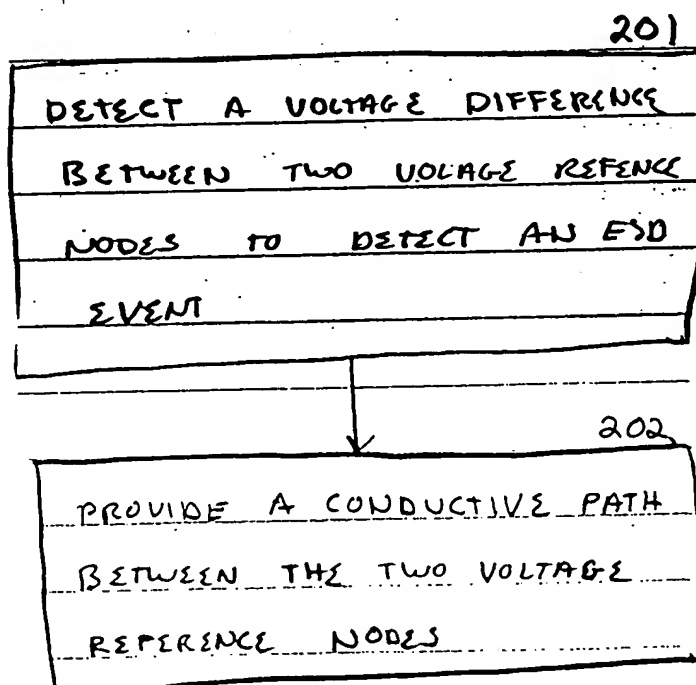 201
DETECT A VOLTAGE DIFFERENCE
BETWEEN TWO VOLAGE REFENCE
NODES TO DETECT AN ESD
EVENT
202
PROVIDE A CONDUCTIVE PATH
BETWEEN THE TWO VOLTAGE
REFERENCE NODES